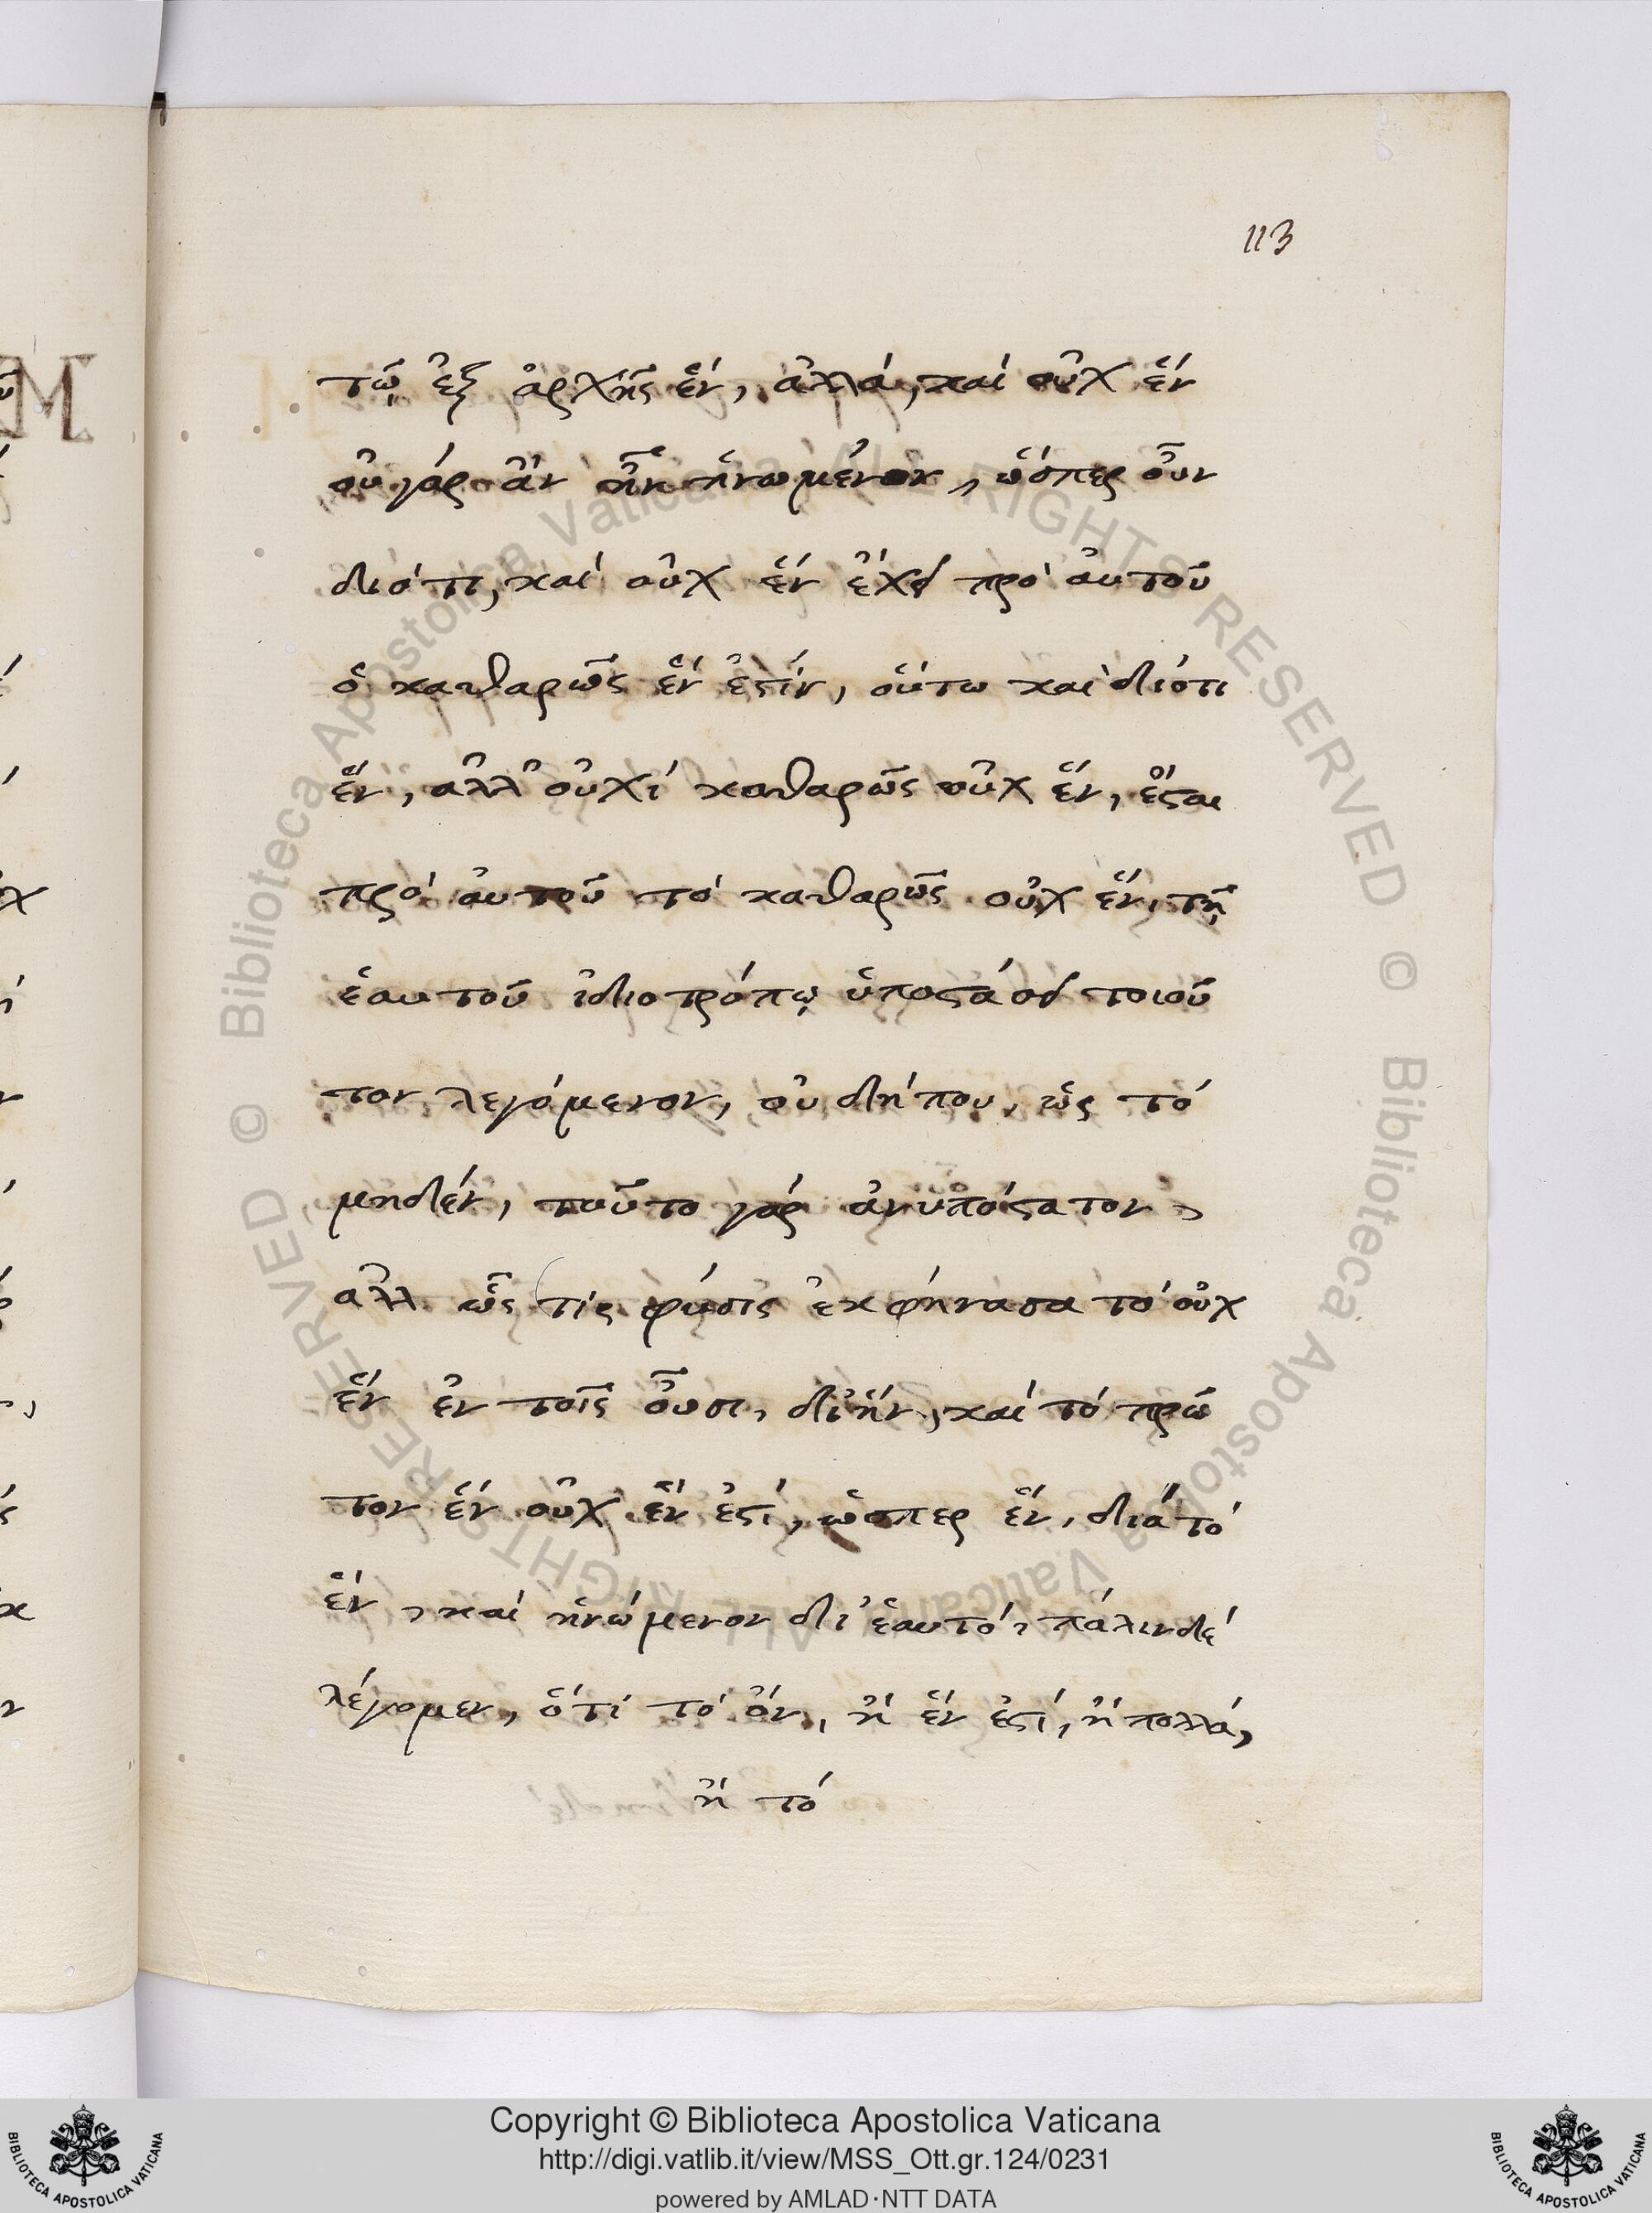 113
τῷ ἐξ ἀρχῆς ἕν, ἀλλά, καί οὐχ ἕν
οὐ γάρ ἂν ἦν ἡνωμένον, ὥσπερ οὖν
διότι, καί οὐχ ἕν ἔχει πρό αὐτοῦ
ὁ καθαρῶς ἕν ἐστίν, οὕτω καὶ διότι
ἕν, ἀλλ' οὐχί καθαρῶς οὐχ ἕν, ἔσται
πρό αὐτοῦ τό καθαρῶς οὐχ ἕν, τῇ
ἑαυτοῦ ἰδιοτρόπῳ ὑποστάσει τοιοῦ
τον λεγόμενον, οὐ δήπου, ὡς τό
μηδέν, τοῦτο γάρ ἀνυπόστατον,
ἀλλ ὥς τίς φύσις ἐκφήνασα τό οὐχ
ἕν ἐν τοῖς οὖσι, δι' ἥν, καί τό πρῶ
τον ἕν οὐχ ἕν ἐστί, ὥσπερ ἕν, διά τό
ἕν, καί ἡνώμενον δι' ἑαυτό, πάλιν δέ
λέγομεν, ὅτί τό ὄν, ἤ ἕν ἐστί, ἤ πολλά,
ἤ τό
M
Biblioteca Apostolica Vaticana ALL RIGHTS RESERVED ©
Biblioteca Apostolica Vaticana ALL RIGHTS RESERVED ©
Copyright © Biblioteca Apostolica Vaticana
http://digi.vatlib.it/view/MSS_Ott.gr.124/0231
powered by AMLAD·NTT DATA
BIBLIOTECA APOSTOLICA VATICANA
BIBLIOTECA APOSTOLICA VATICANA